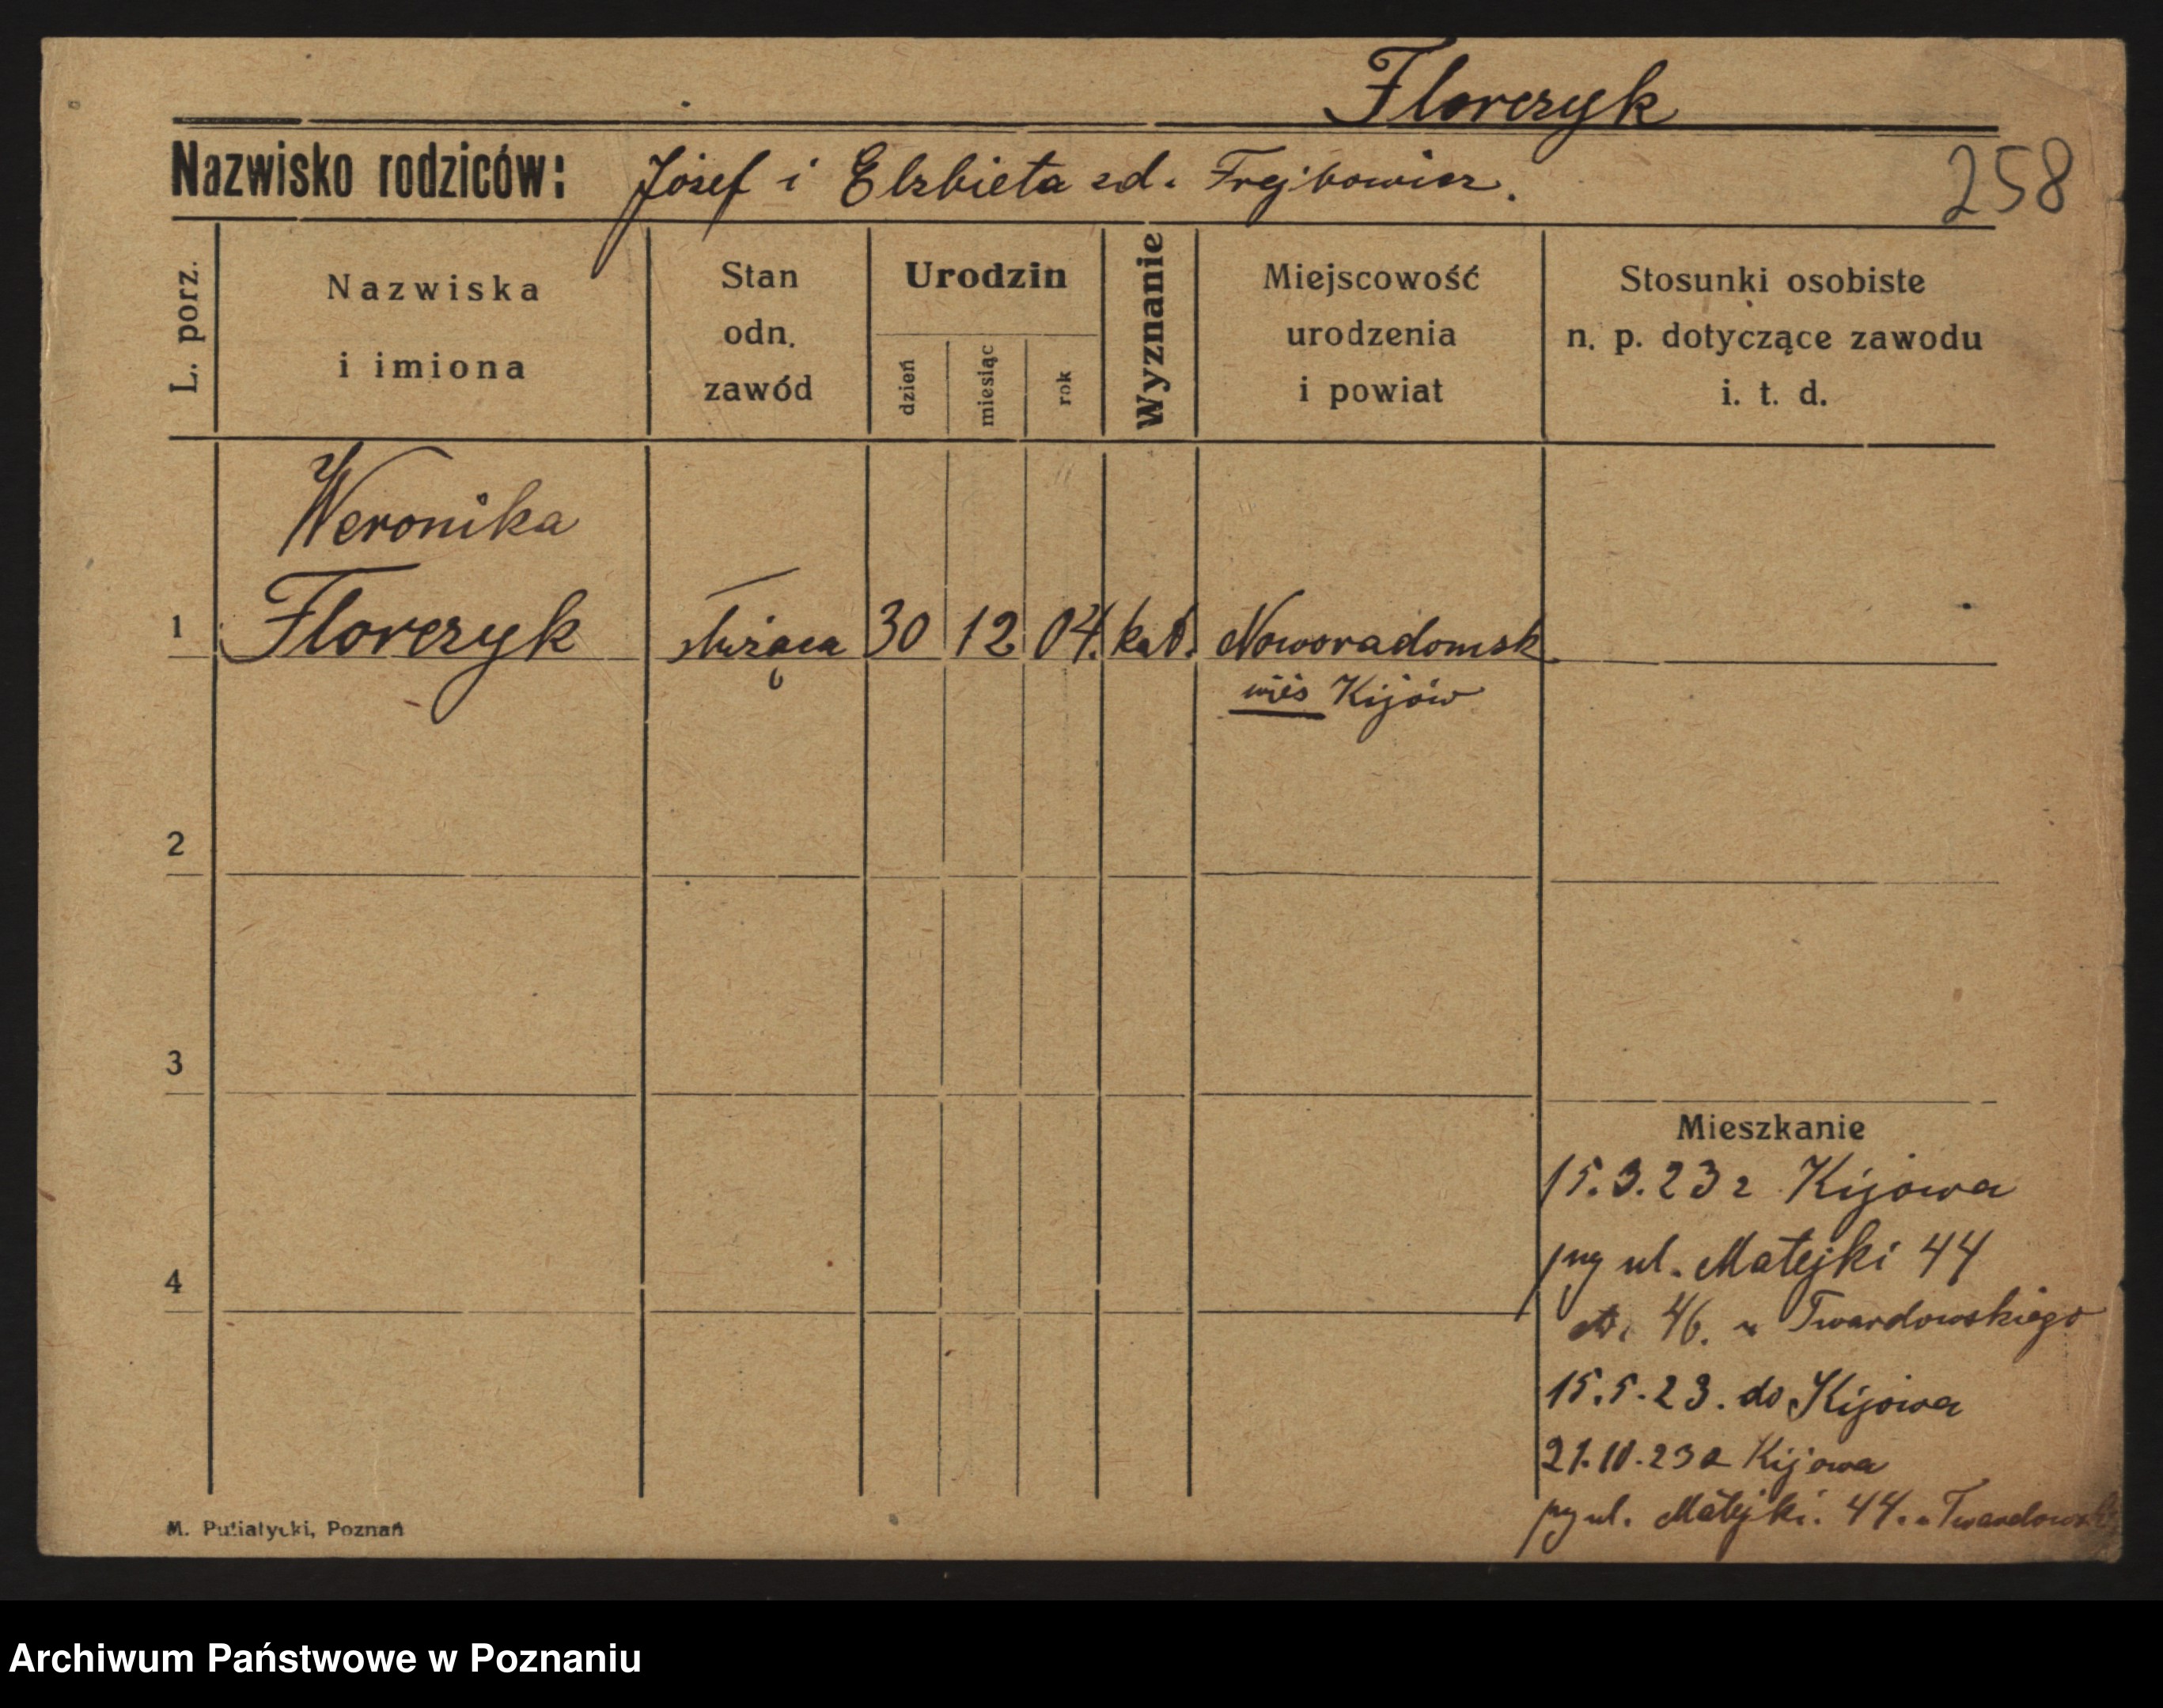 Florczyk
Nazwisko rodziców: Józef i Elżbieta zd. Frejbowicz.
258
L. porz.
Nazwiska
i imiona
Stan
odn.
zawód
Urodzin
dzień
miesiąc
rok
Wyznanie
Miejscowość
urodzenia
i powiat
Stosunki osobiste
n. p. dotyczące zawodu
i. t. d.
Weronika
1 Florczyk służąca 30 12 04. kat. Noworadomsk
wieś Kijów
2
3
4
Mieszkanie
15.3.23 z Kijowa
ul. Matejki 44
46. u Twardowskiego
15.5.23. do Kijowa
21.10.23 z Kijowa
ul. Matejki. 44. u
M. Putiatycki, Poznań
Archiwum Państwowe w Poznaniu